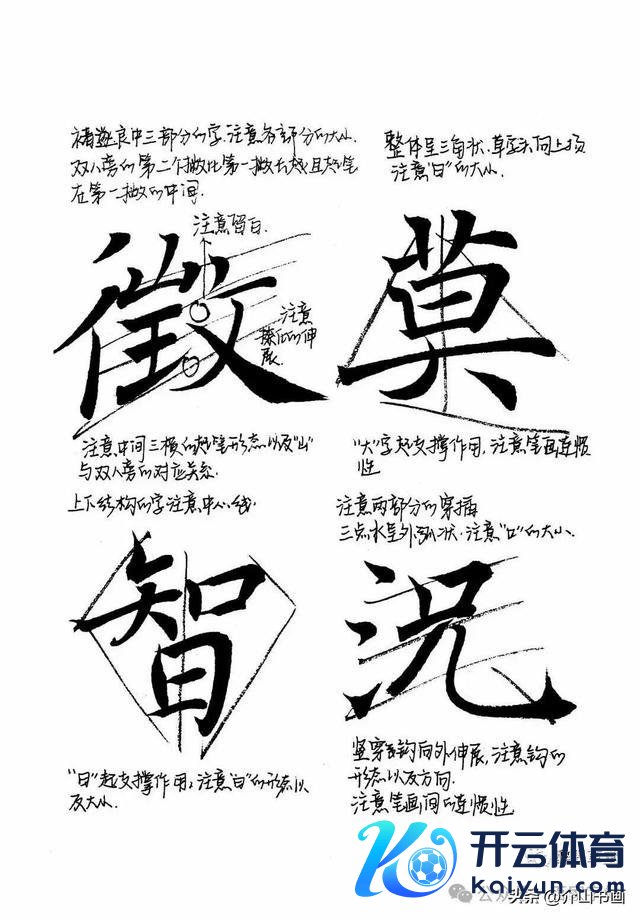 褚遂良中三部分的字.注意各部分的大小.
双人旁的第二个撇比第一撇长些且起笔
在第一撇的中间.
整体呈三角状.草字头向上扬
注意"日"的大小.
注意留白.
徵
注意
撩的伸
展.
莫
注意中间三横的起笔形态以及"山"
与双人旁的对应关系.
"大"字起支撑作用,注意笔画连惯
性
上下结构的字注意中心线.
注意两部分的穿插
三点水呈外弧状.注意"口"的大小.
智
况
"日"起支撑作用,注意"日"的形态以
及大小.
竖弯钩向外伸展,注意钩的
形态以及方向.
注意笔画间的连惯性
开云体育
kaiyun.com
头条@介山书画